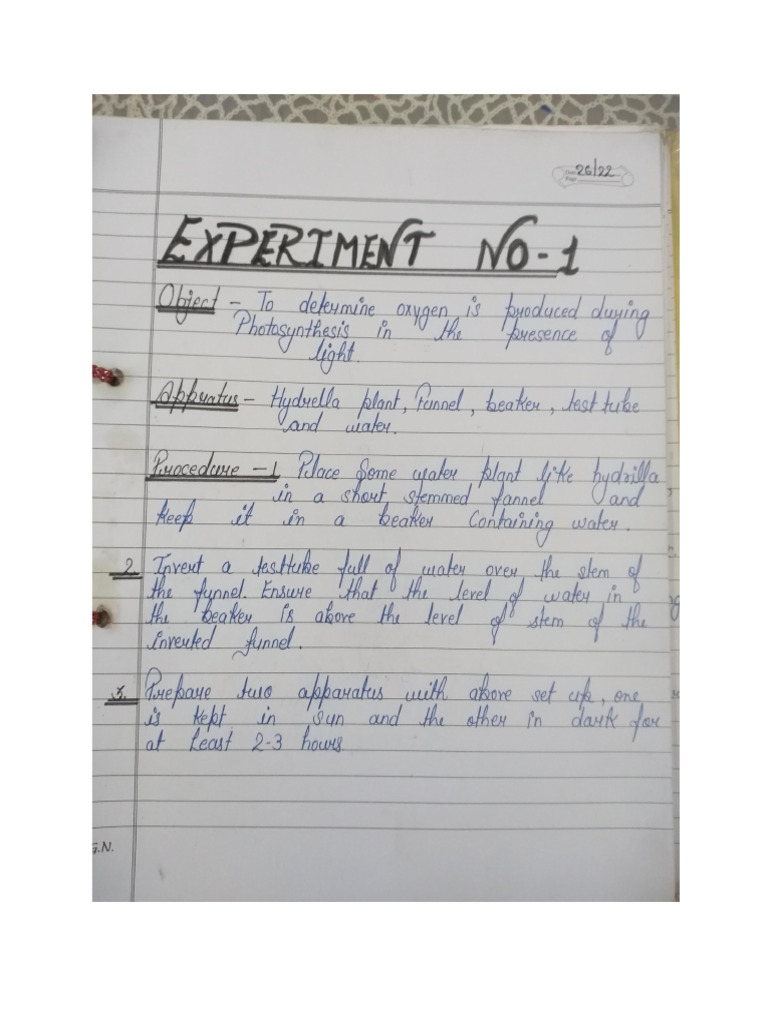 26/22
EXPERIMENT NO-1
Object - To determine oxygen is produced during
Photosynthesis in the presence of
light.
Apparatus - Hydrella plant, Funnel, beaker, test tube
and water.
Procedure - 1 Place Some water plant like hydrilla
in a short stemmed fannel and
keep it in a beaker Containing water.
2. Invert a testtube full of water over the stem of
the funnel. Ensure that the level of water in
the beaker is above the level of stem of the
inverted funnel.
3. Prepare two apparatus with above set up, one
is kept in sun and the other in dark for
at least 2-3 hours
G.N.